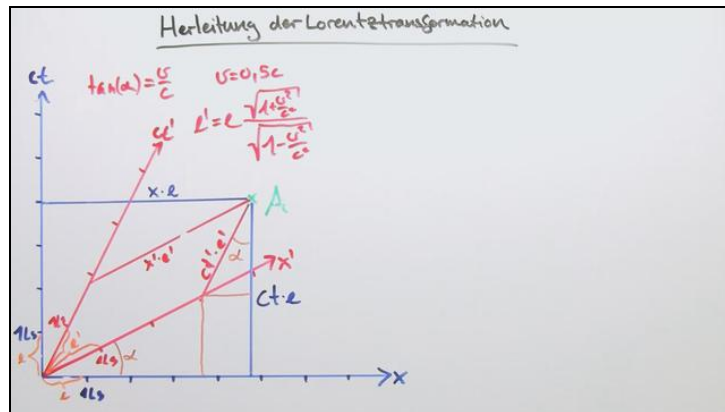 Herleitung der Lorentztransformation
ct
tan(α)=v/c
v=0,5c
ct'
e'=e √(1+v²/c²)/√(1-v²/c²)
x·e
A
x'·e'
ct'·e'
α
x'
ct·e
1Ls
e
e'
1Ls
α
e
1Ls
x